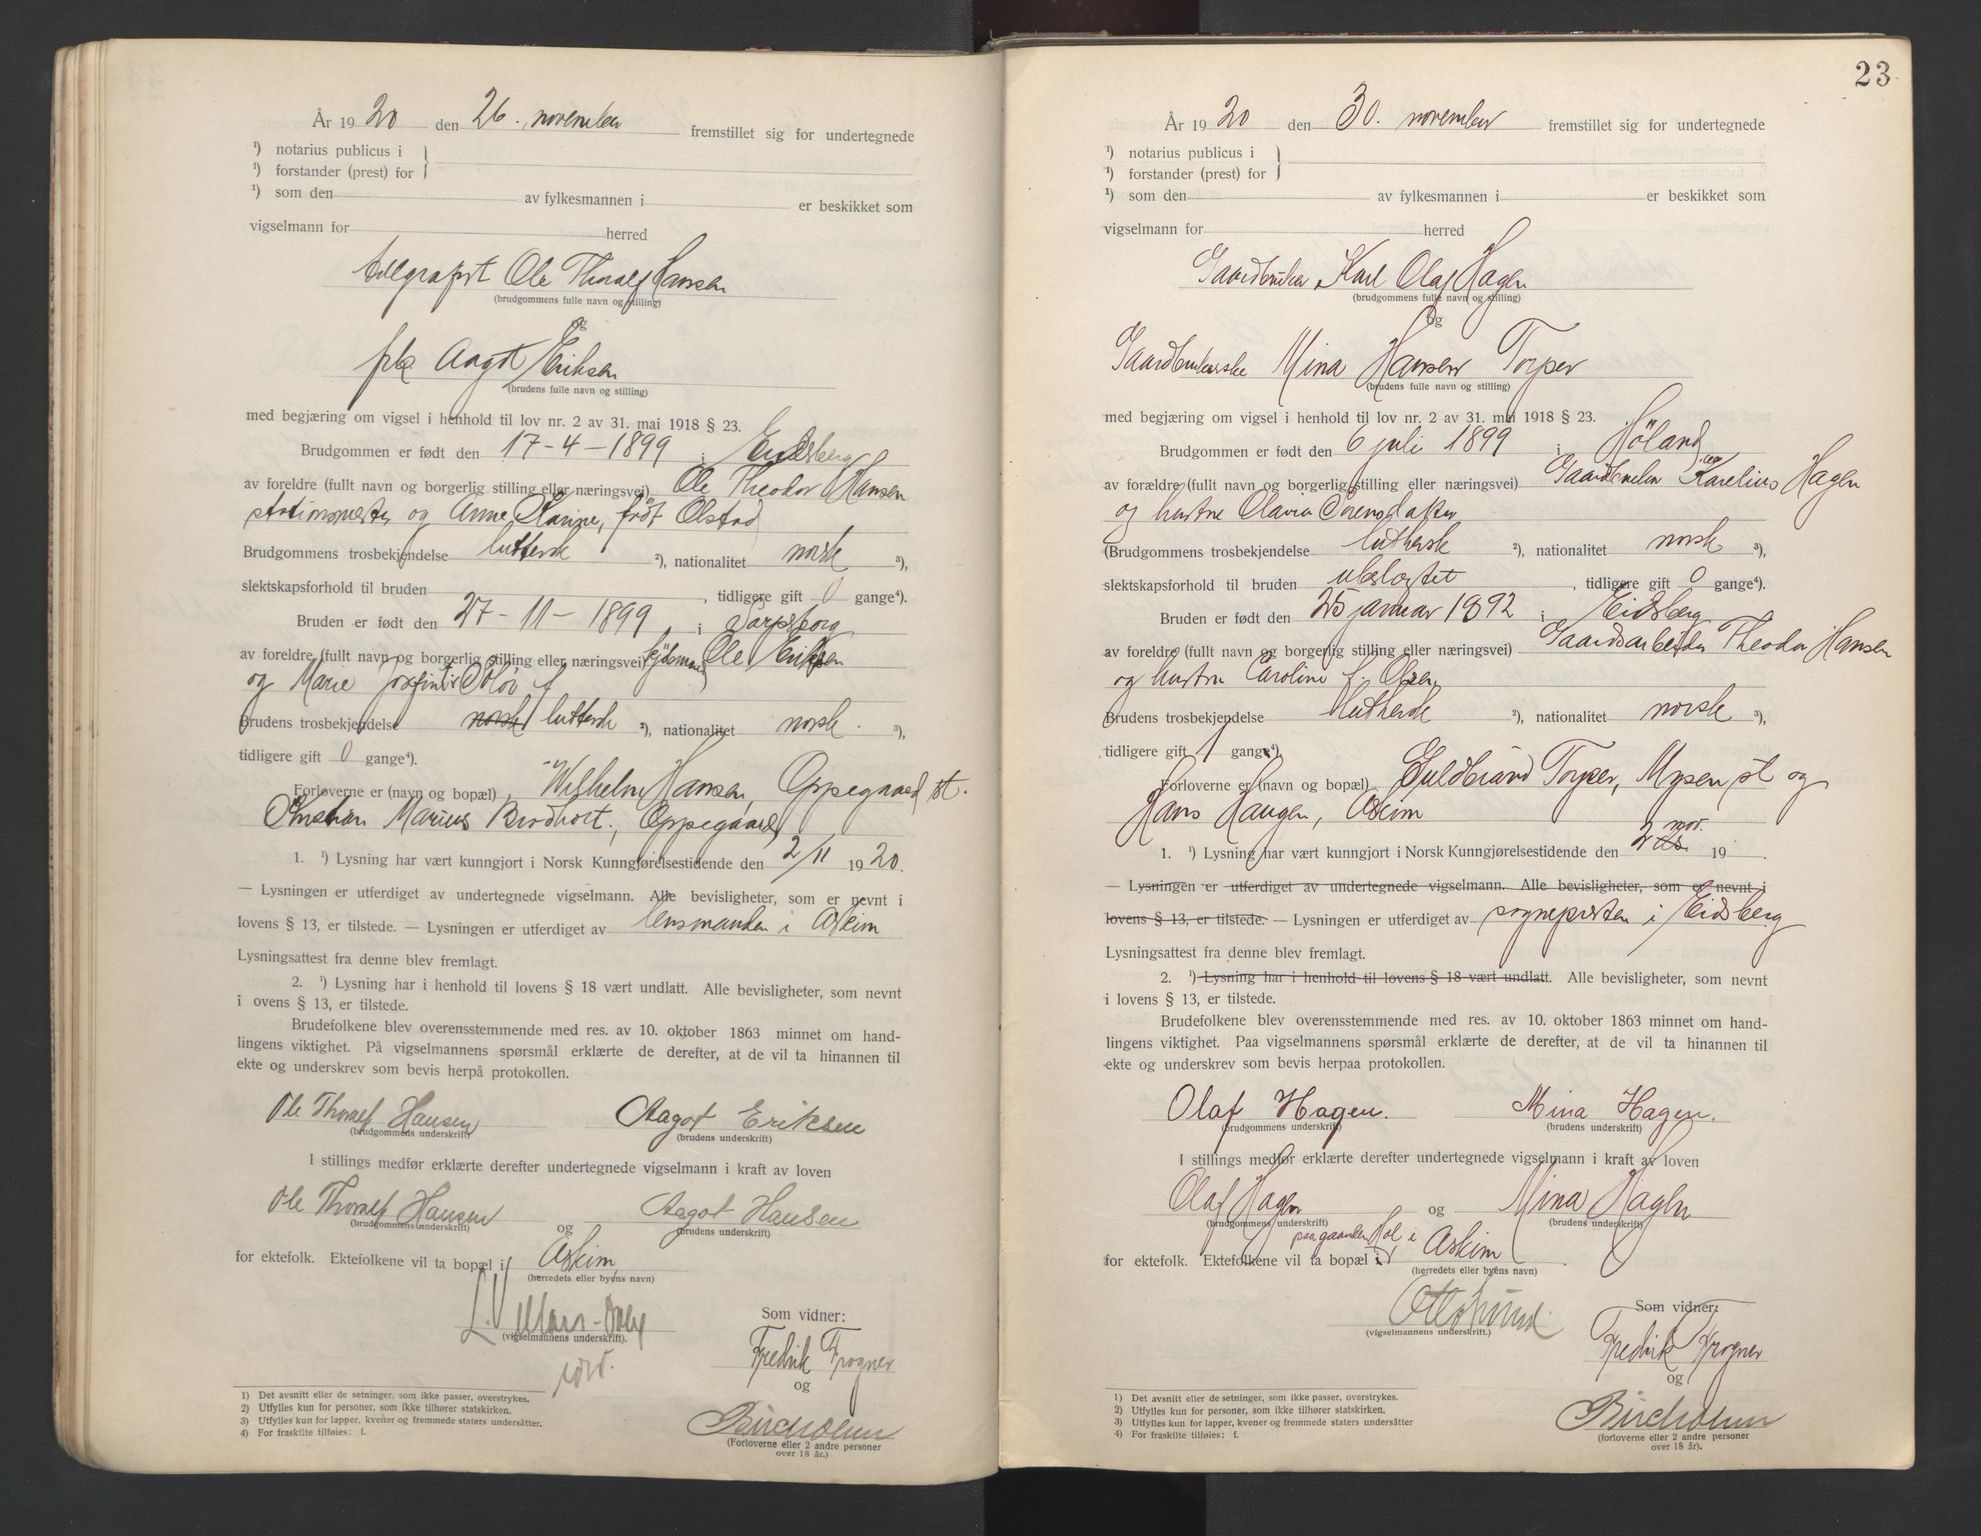 År 1920 den 26. november fremstillet sig for undertegnede
¹) notarius publicus i
¹) forstander (prest) for
¹) som den av fylkesmannen i er beskikket som
vigselmann for herred
telegrafist Ole Thoralf Hansen
(brudgommens fulle navn og stilling)
og
frk Aagot Eriksen
(brudens fulle navn og stilling)
med begjæring om vigsel i henhold til lov nr. 2 av 31. mai 1918 § 23.
Brudgommen er født den 17-4-1899 i Eidsberg
av foreldre (fullt navn og borgerlig stilling eller næringsvei) Ole Theodor Hansen
stationsmester og Anne Karine, født Olstad
Brudgommens trosbekjendelse luthersk ²), nationalitet norsk ³),
slektskapsforhold til bruden , tidligere gift 0 gange⁴).
Bruden er født den 27-11-1899 i Sarpsborg
av foreldre (fullt navn og borgerlig stilling eller næringsvei) Ole Eriksen
og Marie Josefine
Brudens trosbekjendelse norsk luthersk ²), nationalitet norsk. ³),
tidligere gift 0 gange⁴).
Forloverne er (navn og bopæl) Wilhelm Hansen, Oppegaard st.
Kristian Marius Brodholt, Oppegaard
1. ¹) Lysning har vært kunngjort i Norsk Kunngjørelsestidende den 2/11 1920.
— Lysningen er utferdiget av undertegnede vigselmann. Alle bevisligheter, som er nevnt i
lovens § 13, er tilstede. — Lysningen er utferdiget av lensmanden i Askim
Lysningsattest fra denne blev fremlagt.
2. ¹) Lysning har i henhold til lovens § 18 vært undlatt. Alle bevisligheter, som nevnt
i ovens § 13, er tilstede.
Brudefolkene blev overensstemmende med res. av 10. oktober 1863 minnet om hand-
lingens viktighet. På vigselmannens spørsmål erklærte de derefter, at de vil ta hinannen til
ekte og underskrev som bevis herpå protokollen.
Ole Thoralf Hansen Aagot Eriksen
(brudgommens underskrift) (brudens underskrift)
I stillings medfør erklærte derefter undertegnede vigselmann i kraft av loven
Ole Thoralf Hansen og Aagot Hansen
(brudgommens underskrift) (brudens underskrift)
for ektefolk. Ektefolkene vil ta bopæl i Askim
(herredets eller byens navn)
(vigselmannens underskrift).
Som vidner:
Fredrik Frogner
og
Bircholm
(Forloverne eller 2 andre personer
over 18 år.)
1) Det avsnitt eller de setninger, som ikke passer, overstrykes.
2) Utfylles kun for personer, som ikke tilhører statskirken.
3) Utfylles kun for lapper, kvener og fremmede staters undersåtter.
4) For fraskilte tilføies: f.
23
År 1920 den 30. november fremstillet sig for undertegnede
¹) notarius publicus i
¹) forstander (prest) for
¹) som den av fylkesmannen i er beskikket som
vigselmann for herred
Gaardbruker Karl Olaf Hagen
(brudgommens fulle navn og stilling)
og
Gaardbrukerske Mina Hansen Torper
(brudens fulle navn og stilling)
med begjæring om vigsel i henhold til lov nr. 2 av 31. mai 1918 § 23.
Brudgommen er født den 6 juli 1899 i Höland
av forældre (fullt navn og borgerlig stilling eller næringsvei) Gaardbruker Karelius Hagen
og hustru Olavia Sørensdatter
(Brudgommens trosbekjendelse luthersk ²), nationalitet norsk ³),
slektskapsforhold til bruden ubeslegtet , tidligere gift 0 gange⁴).
Bruden er født den 25 januar 1892 i Eidsberg
av foreldre (fullt navn og borgerlig stilling eller næringsvei) Gaardsarbeider Theodor Hansen
og hustru Caroline f. Olsen
Brudens trosbekjendelse luthersk ²), nationalitet norsk ³),
tidligere gift 1 gange⁴).
Forloverne er (navn og bopæl) Guldbrand Torper, Mysen st og
Hans Haugen, Askim
1. ¹) Lysning har vært kunngjort i Norsk Kunngjørelsestidende den 2 nov. 19 .
— Lysningen er utferdiget av undertegnede vigselmann. Alle bevisligheter, som er nevnt i
lovens § 13, er tilstede. — Lysningen er utferdiget av sogneprsten i Eidsberg
Lysningsattest fra denne blev fremlagt.
2. ¹) Lysning har i henhold til lovens § 18 vært undlatt. Alle bevisligheter, som nevnt
i lovens § 13, er tilstede.
Brudefolkene blev overensstemmende med res. av 10. oktober 1863 minnet om hand-
lingens viktighet. Paa vigselmannens spørsmål erklærte de derefter, at de vil ta hinannen til
ekte og underskrev som bevis herpaa protokollen.
Olaf Hagen. Mina Hagen.
(brudgommens underskrift) (brudens underskrift)
I stillings medfør erklærte derefter undertegnede vigselmann i kraft av loven
Olaf Hagen og Mina Hagen
(brudgommens underskrift) (brudens underskrift)
paa gaarden Hol i
for ektefolk. Ektefolkene vil ta bopæl i Askim
(herredets eller byens navn)
(vigselmannens underskrift.)
Som vidner:
Fredrik Frogner
og
Bircholm
(forloverne eller 2 andre personer
over 18 år).
1) Det avsnitt eller de setninger, som ikke passer, overstrykes.
2) Utfylles kun for personer, som ikke tilhører statskirken.
3) Utfylles kun for lapper, kvener og fremmede staters undersåtter
4) For fraskilte tilføies: f.